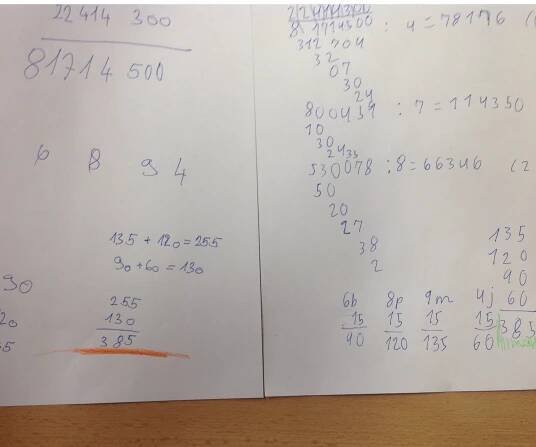 22 414 300
81714 500
6 8 9 4
135 + 120 = 255
90 + 60 = 130
90
20
5
255
130
385
22414300
312704 : 4 = 78176
312704
32
07
30
24
: 7 = 114350
10
30
24
35
530078 : 8 = 66346 (2
50
20
27
38
2
135
120
90
60
385
6b 8p 9m 4j
15 15 15 15
90 120 135 60